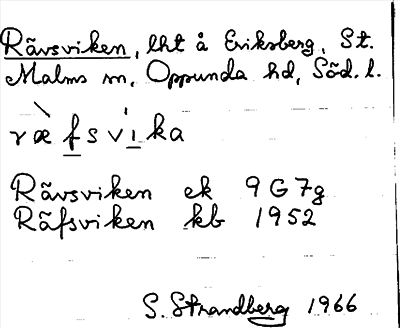 Rävsviken, lht å Eriksberg, St.
Malms sn, Oppunda hd, Söd. l.
ræ̀fsvìka
Rävsviken ek 9G7g
Räfsviken kb 1952
S. Strandberg 1966